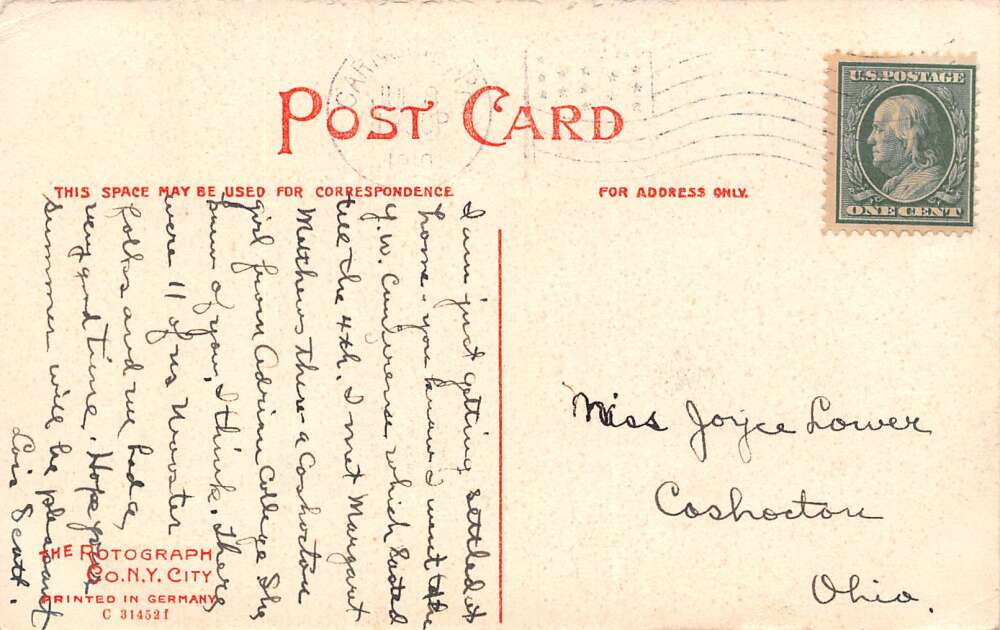 POST CARD
THIS SPACE MAY BE USED FOR CORRESPONDENCE
FOR ADDRESS ONLY.
U.S. POSTAGE
ONE CENT
JUL 8
1910
I am just getting settled at
home. you know I went to the
Y.W. Conference which lasted
till the 4th. I met Margaret
Matthews there - a Coshocton
girl from Adrian College She
knew of you, I think. There
were 11 of us Wooster
folks and we had a
very good time. Hope your
summer will be pleasant
Lois
Miss Joyce Lower
Coshocton
Ohio.
THE ROTOGRAPH
CO. N.Y. CITY
PRINTED IN GERMANY
C 31452 f